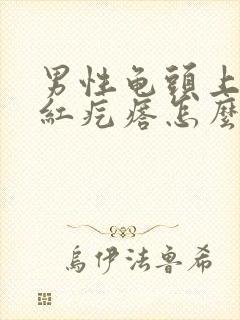 男性龟頭上
紅疙瘩怎麼
烏伊法魯希